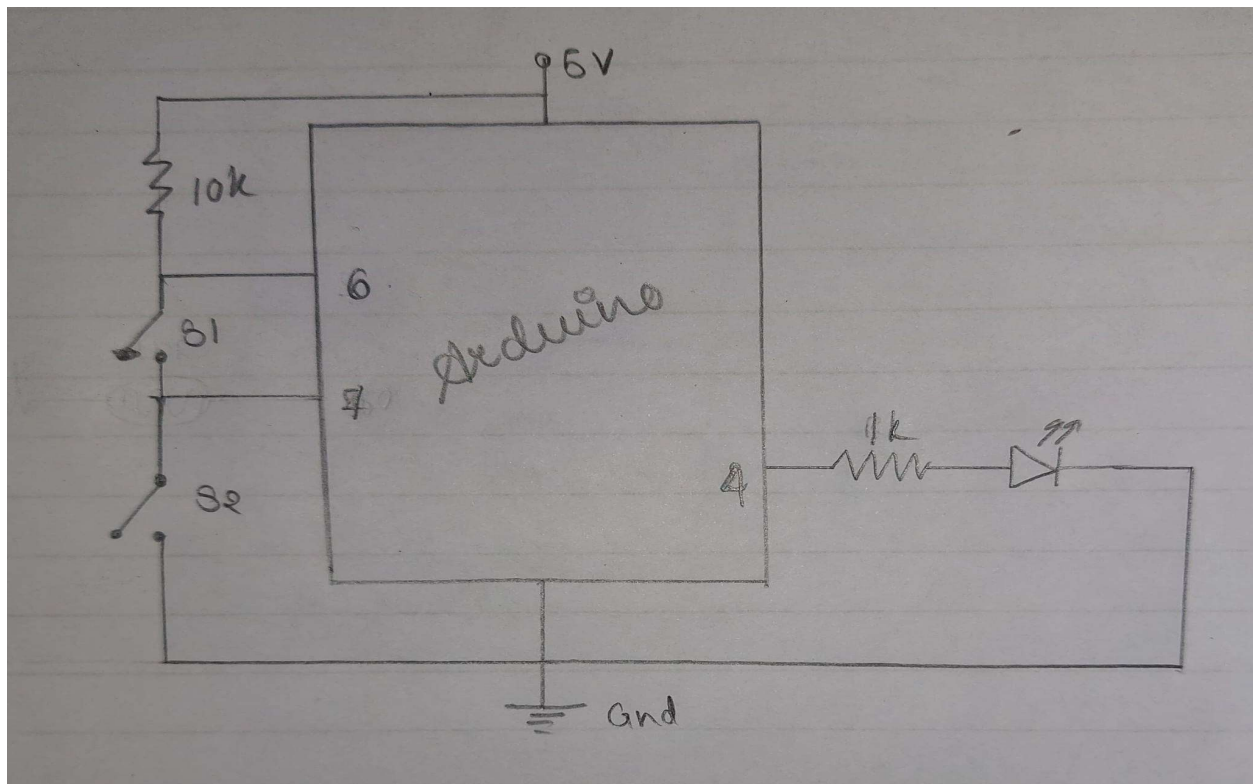 5V
10k
6
S1
Arduino
7
1k
4
S2
Gnd